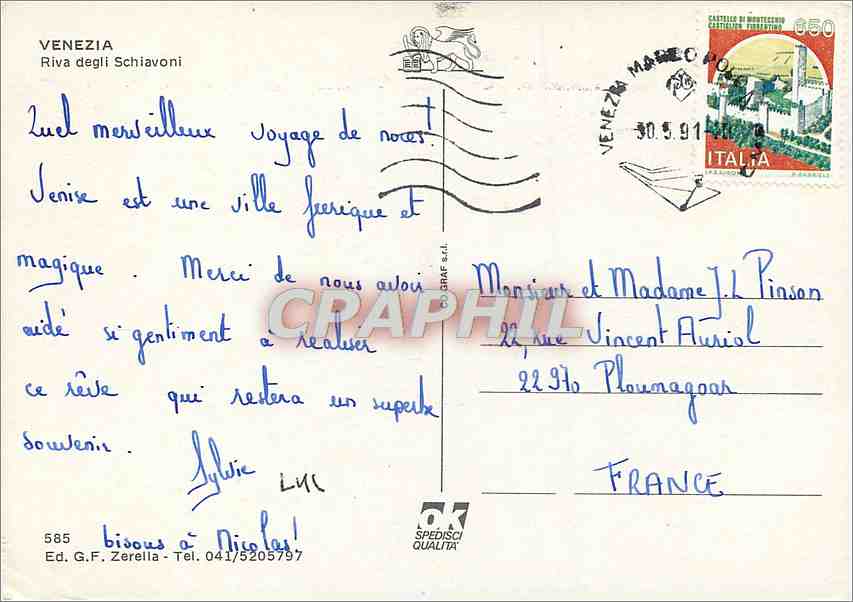 VENEZIA
Riva degli Schiavoni
CASTELLO DI MONTECCHIO
CASTIGLION FIORENTINO
650
ITALIA
VENEZIA MARCO POLO
30.5.91
Quel merveilleux voyage de noces!
Venise est une ville féerique et
magique. Merci de nous avoir
aidé si gentiment à réaliser
ce rêve qui restera un superbe
souvenir.
Sylvie
Luc
bisous à Nicolas!
CO.GRAF s.r.l.
Monsieur et Madame J.L Pinson
22, rue Vincent Auriol
22970 Ploumagoar
FRANCE
CPAPHIL
ok
SPEDISCI
QUALITA'
585
Ed. G.F. Zerella - Tel. 041/5205797